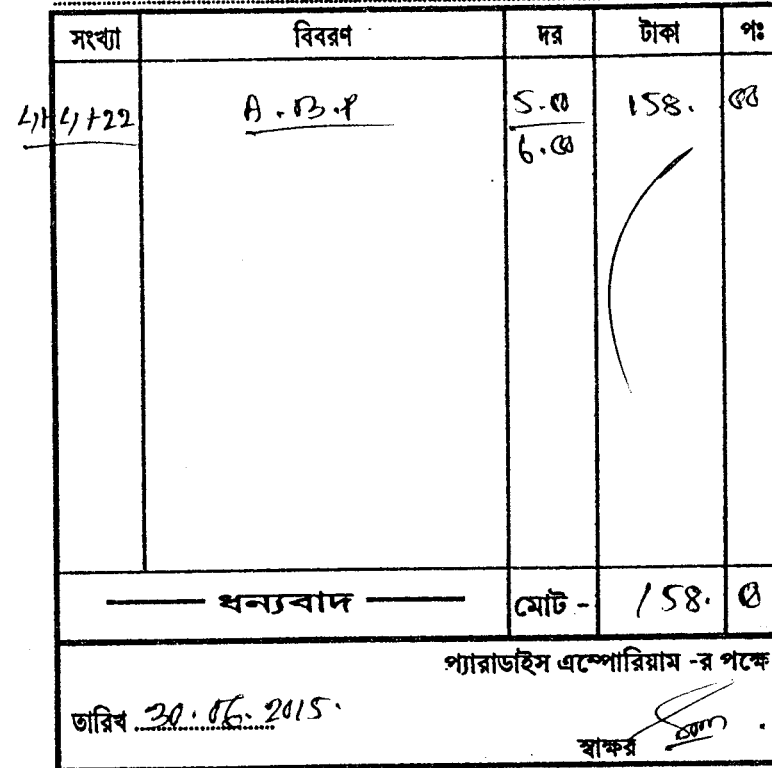 সংখ্যা বিবরণ দর টাকা পঃ
4+4+22 A.B.P 5.00 158. 00
6.00
ধন্যবাদ মোট - 158. 00
প্যারাডাইস এম্পোরিয়াম -র পক্ষে
তারিখ 30.06.2015.
স্বাক্ষর